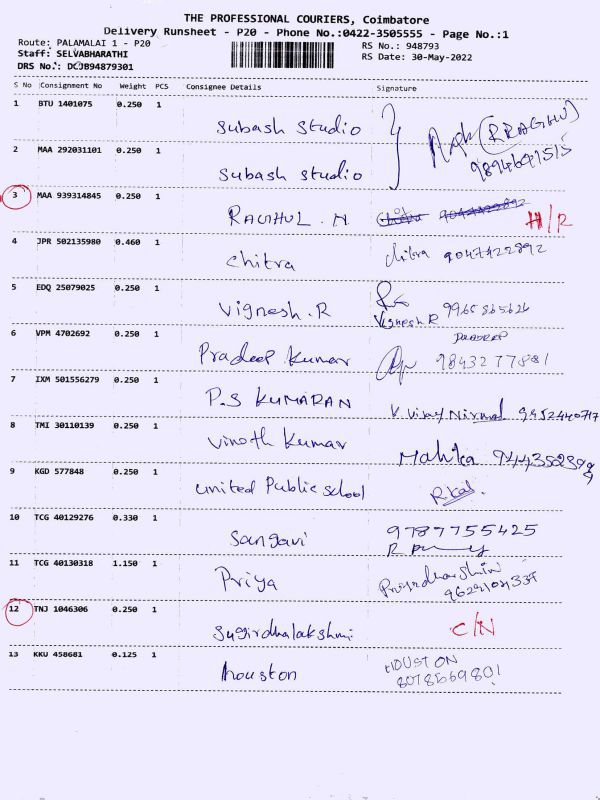 THE PROFESSIONAL COURIERS, Coimbatore
Delivery Runsheet - P20 - Phone No.:0422-3505555 - Page No.:1
Route: PALAMALAI 1 - P20
RS No.: 948793
Staff: SELVABHARATHI
RS Date: 30-May-2022
DRS No.: DCJB94879301
S No Consignment No Weight PCS Consignee Details Signature
1 BTU 1401075 0.250 1
Subash Studio (RRAGHU)
2 MAA 292031101 0.250 1
Subash Studio
3 MAA 939314845 0.250 1
RAGHUL . N H/R
4 JPR 502135980 0.460 1
Chitra Chitra 9047422892
5 EDQ 25079025 0.250 1
Vignesh . R Vignesh R 9965865626
6 VPM 4702692 0.250 1
Pradeep Kumar 9843277881
7 IXM 501556279 0.250 1
P.S KUMARAN V. Vijay Nirmal 9952440717
8 TMI 30110139 0.250 1
Vinoth Kumar
9 KGD 577848 0.250 1
United Public School
10 TCG 40129276 0.330 1
Sangavi 9787755425
11 TCG 40130318 1.150 1
Priya Priyadharshini
12 TNJ 1046306 0.250 1
Sugirdhalakshmi C/N
13 KKU 458681 0.125 1
houston HOUSTON
8078569801